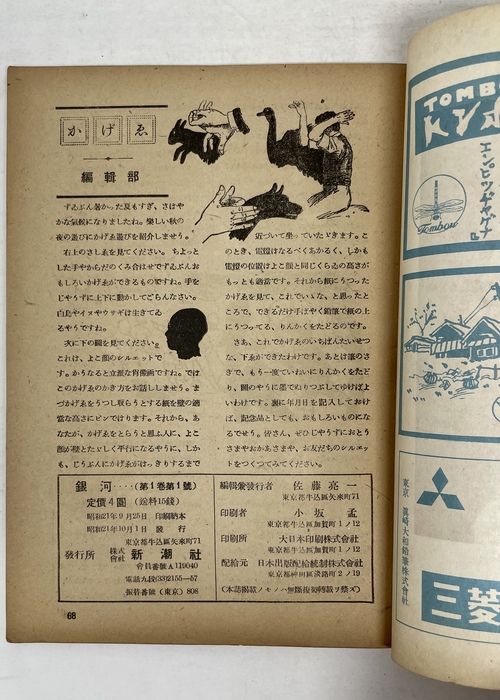 かげゑ
編輯部
ずゐぶん暑かつた夏もすぎ、さはや
かな氣候になりましたね。樂しい秋の
夜の遊びにかげゑ遊びを紹介しませう。
右上のさしゑを見てください。ちよつと
した手やからだのくみ合はせでずゐぶんお
もしろいかげゑができるものですね。手を
じやうずに上下に動かしてごらんなさい。
白鳥やイヌやウサギは生きてゐ
るやうですね。
次に下の圖を見てください。
これは、よこ顔のシルエットで
す。かうなると立派な肖像畫ですね。では
このかげゑのかき方をお話しませう。ま
づかげゑをうつし取らうとする紙を壁の適
當な高さにピンではります。それから、あ
なたが、かげゑをとらうと思ふ人に、よこ
顔が壁とたゞしく平行になるやうに、しか
も、じうぶんにかげゑがはつきりするまで
近づいて坐つていたゞきます。こ
のとき、電燈はなるべくあかるく、しかも
電燈の位置はよこ顔と同じくらゐの高さが
もつとも適當です。それから紙にうつつた
かげゑを見て、これでいゝな、と思つたと
ころで、できるだけ手ばやく鉛筆で紙の上
にうつつてる、りんかくをたどるのです。
さあ、これでかげゑのいちばんたいせつ
な、下ゑができたわけです。あとは濃のさ
きで、もう一度ていねいにりんかくをたど
り、圖のやうに墨でぬりつぶしてゆけばよ
いわけです。裏に年月日を記入しておけ
ば、記念品としても、おもしろいものにな
るでせう。皆さん、ぜひじやうずにおとう
さまやおかあさまや、お友だちのシルエッ
トをつくつてみてください。
銀河‥‥(第1卷第1號)
定價4圓 (送料15錢)
昭和21年9月25日 印刷納本
昭和21年10月1日 發行
東京都牛込區矢來町71
發行所 株式會社 新潮社
會員番號A119040
電話九段(33)2155—57
振替番號(東京)808
編輯兼發行者 佐藤亮一
東京都牛込區矢來町71
印刷者 小坂孟
東京都牛込區加賀町1ノ12
印刷所 大日本印刷株式會社
東京都牛込區加賀町1ノ12
配給元 日本出版配給統制株式會社
東京都神田區淡路町2ノ19
(本誌揭載ノモノハ無斷複製轉載ヲ禁ズ)
68
TOMB
Tombow
東京 眞崎大和鉛筆株式會社
三菱